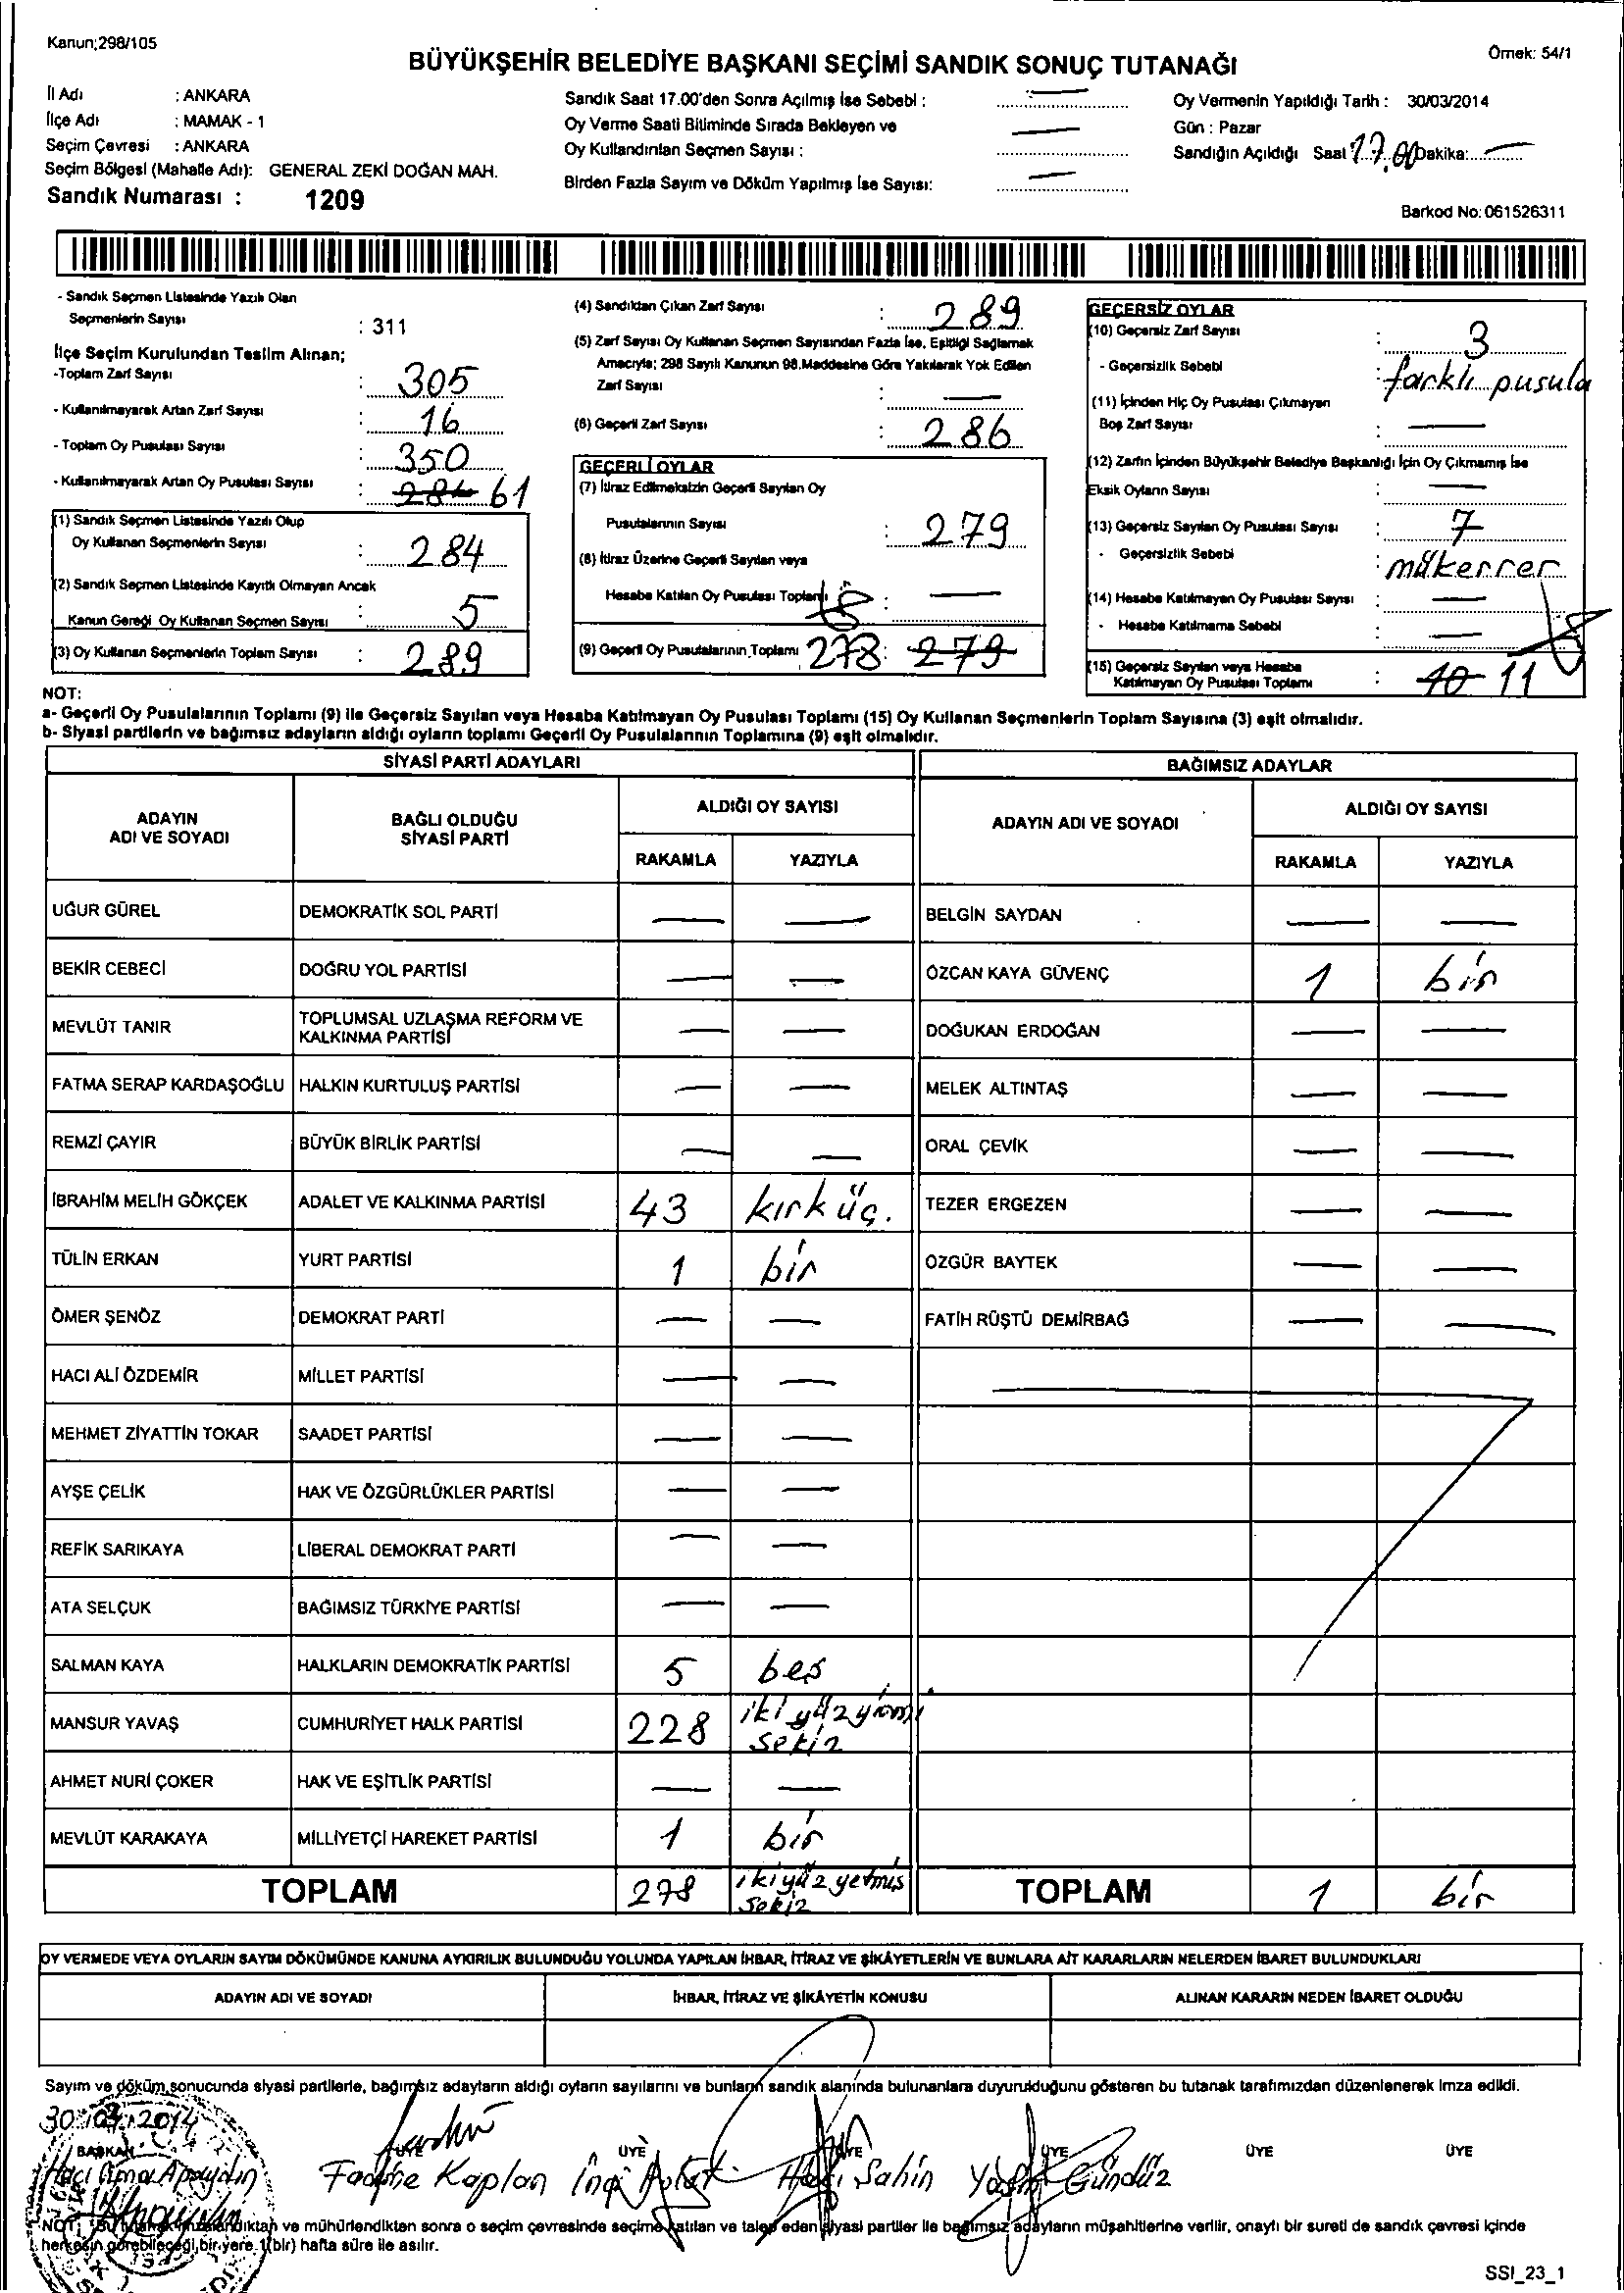 Kanun;298/105
Örnek: 54/1
BÜYÜKŞEHİR BELEDİYE BAŞKANI SEÇİMİ SANDIK SONUÇ TUTANAĞI
İl Adı : ANKARA
İlçe Adı : MAMAK - 1
Seçim Çevresi : ANKARA
Seçim Bölgesi (Mahalle Adı): GENERAL ZEKİ DOĞAN MAH.
Sandık Numarası : 1209
Sandık Saat 17.00'den Sonra Açılmış İse Sebebi : —
Oy Verme Saati Bitiminde Sırada Bekleyen ve
Oy Kullandırılan Seçmen Sayısı : —
Birden Fazla Sayım ve Döküm Yapılmış İse Sayısı: —
Oy Vermenin Yapıldığı Tarih : 30/03/2014
Gün : Pazar
Sandığın Açıldığı Saat 17.00 Dakika: —
Barkod No: 061526311
- Sandık Seçmen Listesinde Yazılı Olan
Seçmenlerin Sayısı : 311
İlçe Seçim Kurulundan Teslim Alınan;
-Toplam Zarf Sayısı : 305
- Kullanılmayarak Artan Zarf Sayısı : 16
- Toplam Oy Pusulası Sayısı : 350
- Kullanılmayarak Artan Oy Pusulası Sayısı : 284 61
(1) Sandık Seçmen Listesinde Yazılı Olup
Oy Kullanan Seçmenlerin Sayısı : 284
(2) Sandık Seçmen Listesinde Kayıtlı Olmayan Ancak
Kanun Gereği Oy Kullanan Seçmen Sayısı : 5
(3) Oy Kullanan Seçmenlerin Toplam Sayısı : 289
(4) Sandıktan Çıkan Zarf Sayısı : 289
(5) Zarf Sayısı Oy Kullanan Seçmen Sayısından Fazla İse, Eşitliği Sağlamak
Amacıyla; 298 Sayılı Kanunun 98.Maddesine Göre Yakılarak Yok Edilen
Zarf Sayısı : —
(6) Geçerli Zarf Sayısı : 286
GEÇERLİ OYLAR
(7) İtiraz Edilmeksizin Geçerli Sayılan Oy
Pusulalarının Sayısı : 279
(8) İtiraz Üzerine Geçerli Sayılan veya
Hesaba Katılan Oy Pusulası Toplamı : —
(9) Geçerli Oy Pusulalarının Toplamı 278 : 279
GEÇERSİZ OYLAR
(10) Geçersiz Zarf Sayısı : 3
- Geçersizlik Sebebi : farklı pusula
(11) İçinden Hiç Oy Pusulası Çıkmayan
Boş Zarf Sayısı : —
(12) Zarfın İçinden Büyükşehir Belediye Başkanlığı İçin Oy Çıkmamış İse
Eksik Oyların Sayısı : —
(13) Geçersiz Sayılan Oy Pusulası Sayısı : 7
- Geçersizlik Sebebi : mükerrer
(14) Hesaba Katılmayan Oy Pusulası Sayısı : —
- Hesaba Katılmama Sebebi : —
(15) Geçersiz Sayılan veya Hesaba
Katılmayan Oy Pusulası Toplamı : 10 11
NOT:
a- Geçerli Oy Pusulalarının Toplamı (9) ile Geçersiz Sayılan veya Hesaba Katılmayan Oy Pusulası Toplamı (15) Oy Kullanan Seçmenlerin Toplam Sayısına (3) eşit olmalıdır.
b- Siyasi partilerin ve bağımsız adayların aldığı oyların toplamı Geçerli Oy Pusulalarının Toplamına (9) eşit olmalıdır.
SİYASİ PARTİ ADAYLARI
ADAYIN
ADI VE SOYADI
BAĞLI OLDUĞU
SİYASİ PARTİ
ALDIĞI OY SAYISI
RAKAMLA YAZIYLA
UĞUR GÜREL DEMOKRATİK SOL PARTİ — —
BEKİR CEBECİ DOĞRU YOL PARTİSİ — —
MEVLÜT TANIR TOPLUMSAL UZLAŞMA REFORM VE
KALKINMA PARTİSİ — —
FATMA SERAP KARDAŞOĞLU HALKIN KURTULUŞ PARTİSİ — —
REMZİ ÇAYIR BÜYÜK BİRLİK PARTİSİ — —
İBRAHİM MELİH GÖKÇEK ADALET VE KALKINMA PARTİSİ 43 kırk üç.
TÜLİN ERKAN YURT PARTİSİ 1 bir
ÖMER ŞENÖZ DEMOKRAT PARTİ — —
HACI ALİ ÖZDEMİR MİLLET PARTİSİ — —
MEHMET ZİYATTİN TOKAR SAADET PARTİSİ — —
AYŞE ÇELİK HAK VE ÖZGÜRLÜKLER PARTİSİ — —
REFİK SARIKAYA LİBERAL DEMOKRAT PARTİ — —
ATA SELÇUK BAĞIMSIZ TÜRKİYE PARTİSİ — —
SALMAN KAYA HALKLARIN DEMOKRATİK PARTİSİ 5 beş
MANSUR YAVAŞ CUMHURİYET HALK PARTİSİ 228 iki yüz yirmi
sekiz
AHMET NURİ ÇOKER HAK VE EŞİTLİK PARTİSİ — —
MEVLÜT KARAKAYA MİLLİYETÇİ HAREKET PARTİSİ 1 bir
TOPLAM 278 iki yüz yetmiş
sekiz
BAĞIMSIZ ADAYLAR
ADAYIN ADI VE SOYADI
ALDIĞI OY SAYISI
RAKAMLA YAZIYLA
BELGİN SAYDAN — —
ÖZCAN KAYA GÜVENÇ 1 bir
DOĞUKAN ERDOĞAN — —
MELEK ALTINTAŞ — —
ORAL ÇEVİK — —
TEZER ERGEZEN — —
ÖZGÜR BAYTEK — —
FATİH RÜŞTÜ DEMİRBAĞ — —
TOPLAM 1 bir
OY VERMEDE VEYA OYLARIN SAYIM DÖKÜMÜNDE KANUNA AYKIRILIK BULUNDUĞU YOLUNDA YAPILAN İHBAR, İTİRAZ VE ŞİKÂYETLERİN VE BUNLARA AİT KARARLARIN NELERDEN İBARET BULUNDUKLARI
ADAYIN ADI VE SOYADI İHBAR, İTİRAZ VE ŞİKÂYETİN KONUSU ALINAN KARARIN NEDEN İBARET OLDUĞU
Sayım ve döküm sonucunda siyasi partilerle, bağımsız adayların aldığı oyların sayılarını ve bunların sandık alanında bulunanlara duyurulduğunu gösteren bu tutanak tarafımızdan düzenlenerek imza edildi.
30.03.2014
BAŞKAN ÜYE ÜYE ÜYE ÜYE ÜYE ÜYE
Apaydın Kaplan Şahin Gündüz
NOT: ve mühürlendikten sonra o seçim çevresinde seçime katılan ve talep eden siyasi partiler ile bağımsız adayların müşahitlerine verilir, onaylı bir sureti de sandık çevresi içinde
herkesin görebileceği bir yere 1(bir) hafta süre ile asılır.
SSI_23_1